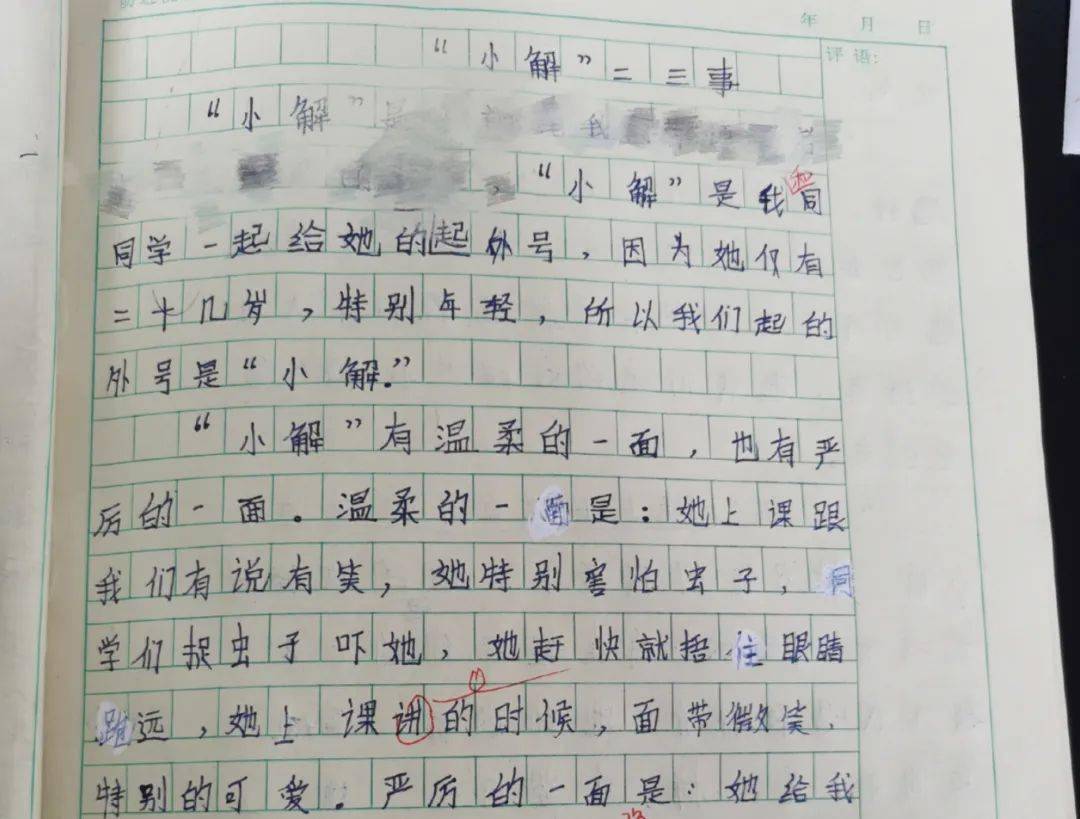 年 月 日
评语:
“小解”二三事
“小解”是我
,“小解”是我和同
同学一起给她的起外号,因为她仅有
二十几岁,特别年轻,所以我们起的
外号是“小解.”
“小解”有温柔的一面,也有严
厉的一面。温柔的一面是:她上课跟
我们有说有笑,她特别害怕虫子,同
学们捉虫子吓她,她赶快就捂住眼睛
跑远,她上课讲的时候,面带微笑.
特别的可爱。严厉的一面是:她给我